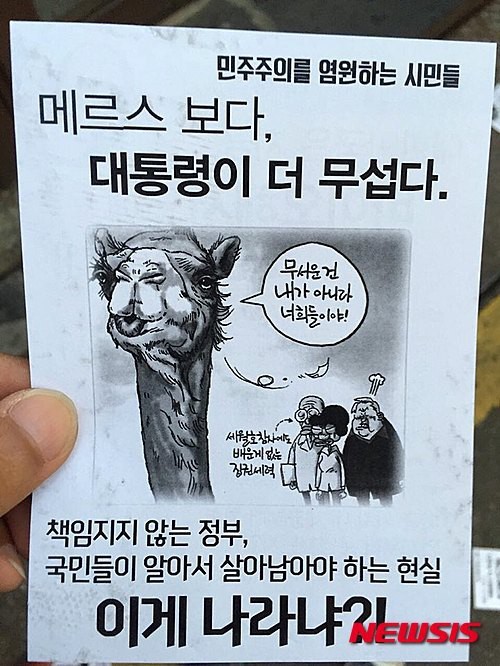 민주주의를 염원하는 시민들
메르스 보다,
대통령이 더 무섭다.
무서운 건
내가 아니라
너희들이야!
세월호참사에도
배운게 없는
집권세력
책임지지 않는 정부,
국민들이 알아서 살아남아야 하는 현실
이게 나라냐?!
NEWSIS